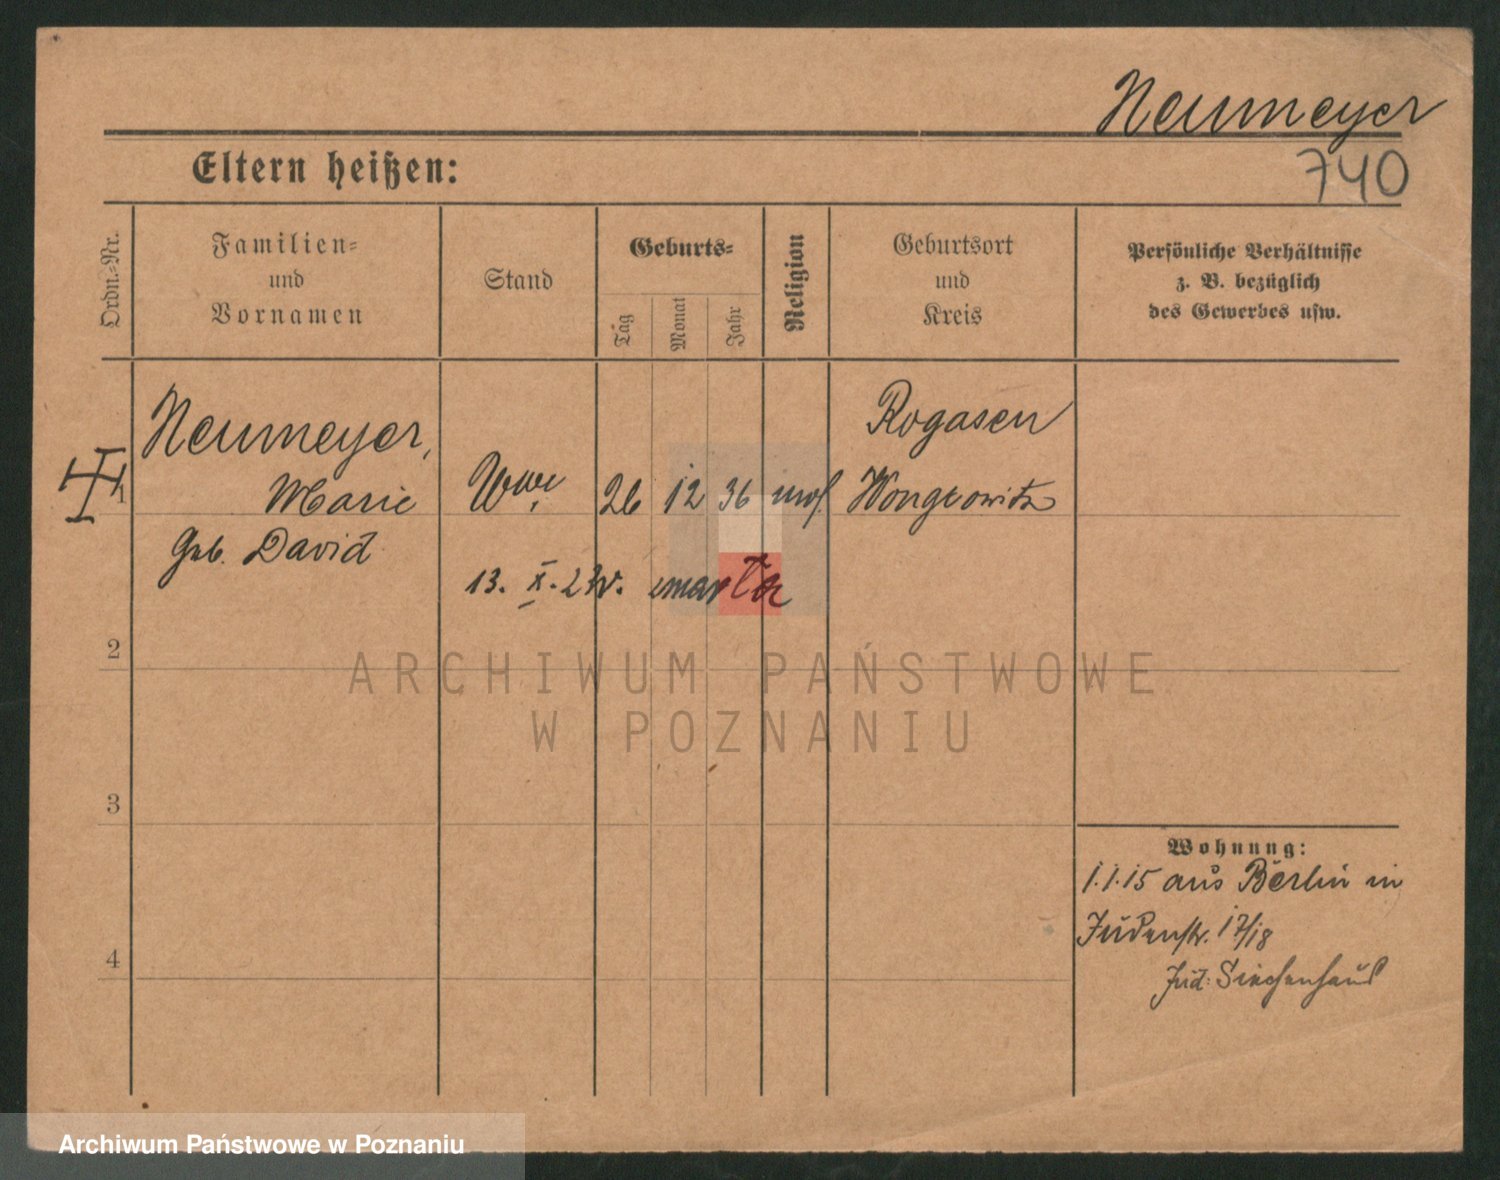 Neumeyer
740
Eltern heißen:
Ordn.-Nr.
Familien- und Vornamen
Stand
Geburts-
Tag
Monat
Jahr
Religion
Geburtsort und Kreis
Persönliche Verhältnisse z. B. bezüglich des Gewerbes usw.
Neumeyer,
Rogasen
1
Marie
Wwe
26
12
36
mos.
Wongrowitz
geb. David
13. X. 27 r. zmarła
2
ARCHIWUM PAŃSTWOWE
W POZNANIU
3
Wohnung:
1.1.15 aus Berlin in
Judenstr. 17/18
4
Jüd. Siechenhaus
Archiwum Państwowe w Poznaniu